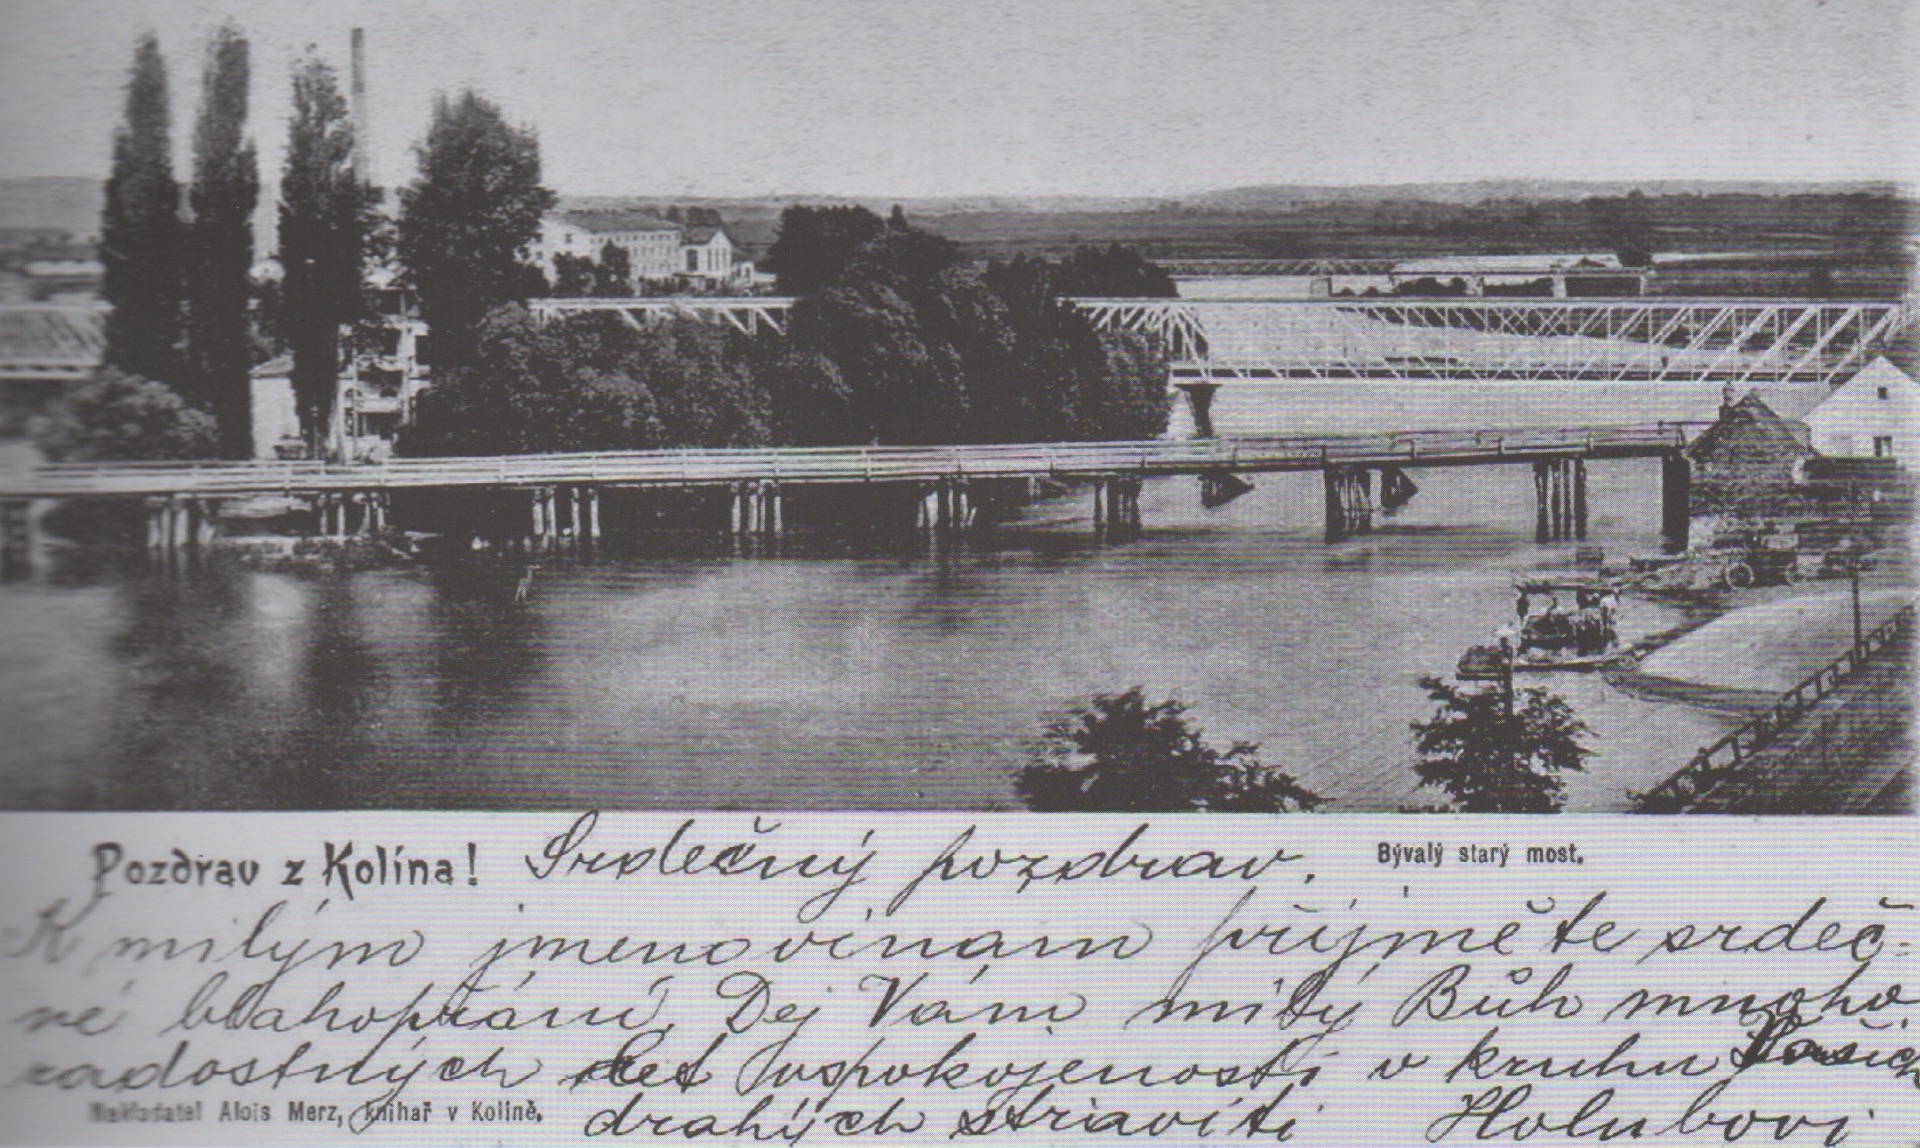 Pozdrav z Kolína! Srdečný pozdrav. Bývalý starý most.
K milým jmenovinám přijměte srdeč-
né blahopřání. Dej Vám milý Bůh mnoho
radostných let v spokojenosti v kruhu Vašich
drahých stráviti Holubovi
Nakladatel Alois Merz, knihař v Kolíně.